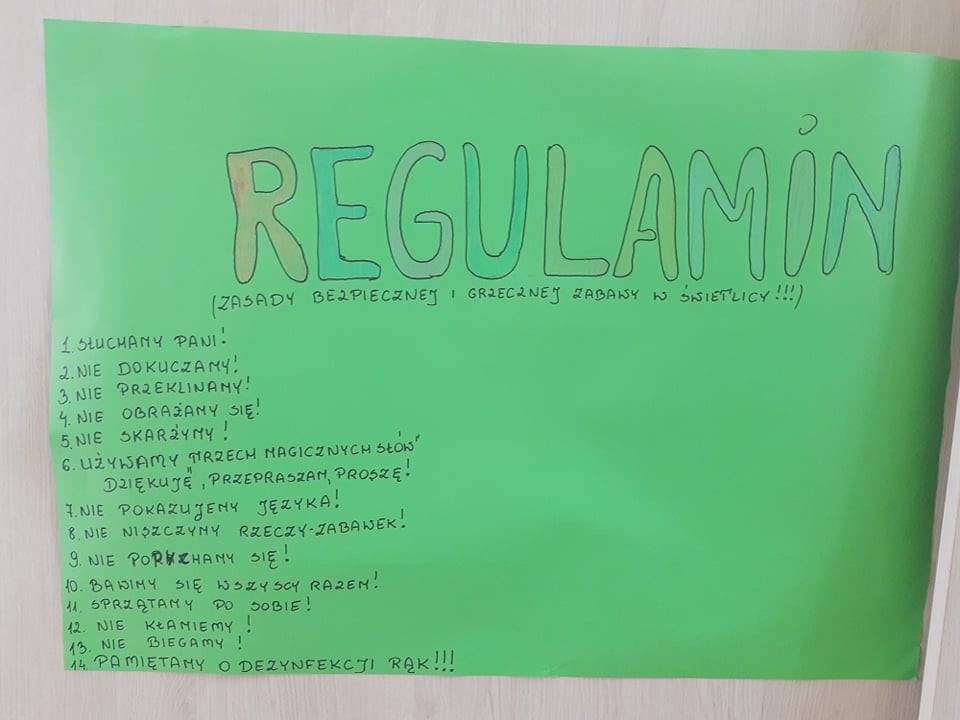 REGULAMIN
(ZASADY BEZPIECZNEJ I GRZECZNEJ ZABAWY W ŚWIETLICY!!!)
1. SŁUCHAMY PANI!
2. NIE DOKUCZAMY!
3. NIE PRZEKLINAMY!
4. NIE OBRAŻAMY SIĘ!
5. NIE SKARŻYMY!
6. UŻYWAMY "TRZECH MAGICZNYCH SŁÓW"
DZIĘKUJĘ", PRZEPRASZAM, PROSZĘ!
7. NIE POKAZUJEMY JĘZYKA!
8. NIE NISZCZYMY RZECZY-ZABAWEK!
9. NIE POPYCHAMY SIĘ!
10. BAWIMY SIĘ WSZYSCY RAZEM!
11. SPRZĄTAMY PO SOBIE!
12. NIE KŁAMIEMY!
13. NIE BIEGAMY!
14. PAMIĘTAMY O DEZYNFEKCJI RĄK!!!